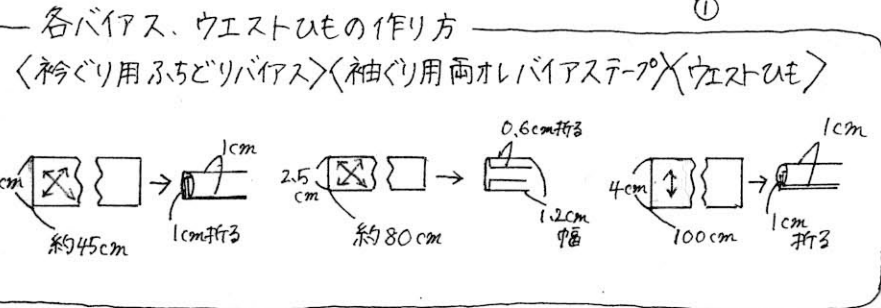 ①
各バイアス、ウエストひもの作り方
〈衿ぐり用ふちどりバイアス〉〈袖ぐり用両オレバイアステープ〉〈ウエストひも〉
cm
約45cm
1cm
1cm折る
2.5cm
約80cm
0.6cm折る
1.2cm幅
4cm
100cm
1cm
1cm折る